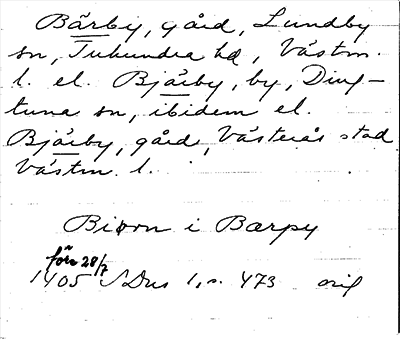 Bärby, gård, Lundby
sn, Tuhundra hd, Västm.
l. el. Bjärby, by, Ding-
tuna sn, ibidem el.
Bjärby, gård, Västerås stad
Västm. l.
Biorn i Bærpy
före 28/7
1405 SDns 1, s. 473 orig